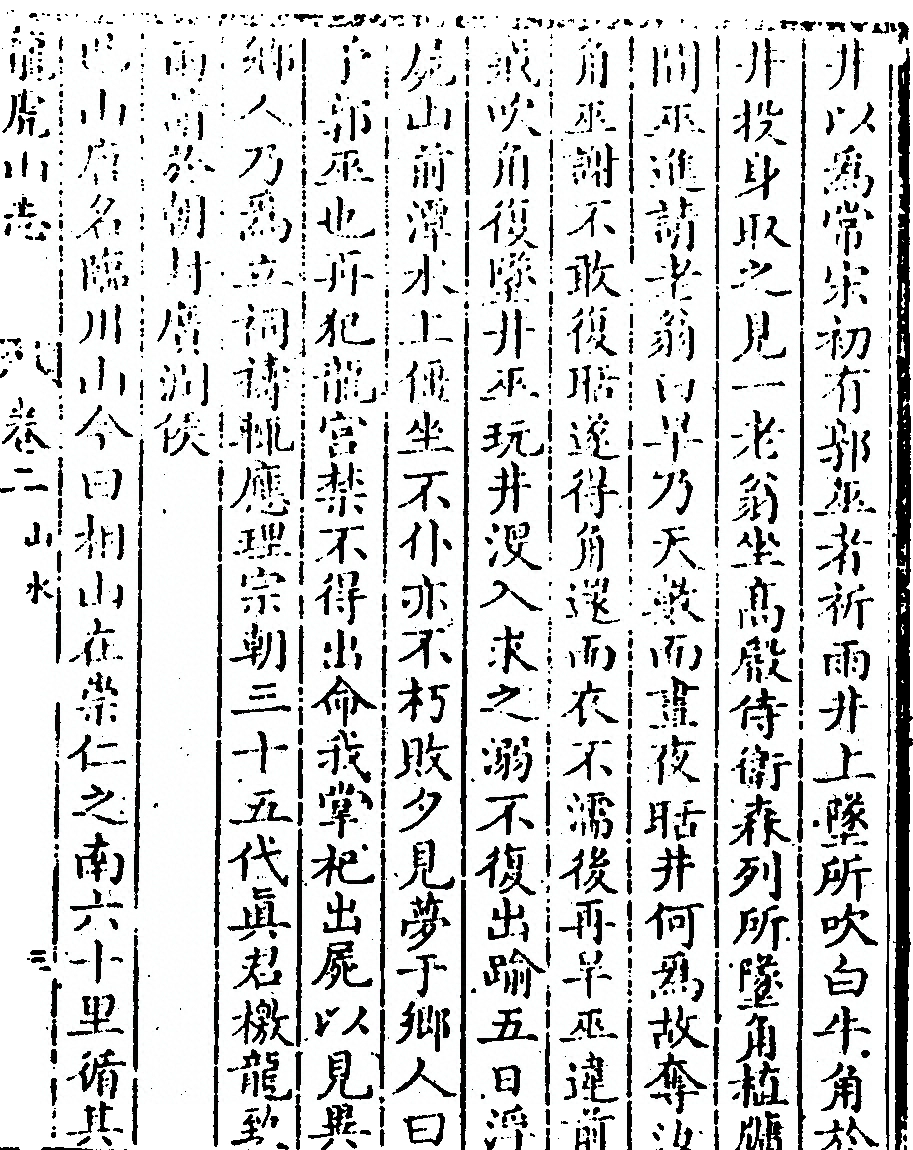 井以爲常宋初有郭巫者祈雨井上墜所吹白牛角於
井投身取之見一老翁坐高殿侍衛森列所墜角植牖
間巫進請老翁曰旱乃天數而晝夜聒井何爲故奪汝
角巫謝不敢復聒遂得角還而衣不濡後再旱巫違前
戒吹角復墜井巫玩井沒入求之溺不復出踰五日浮
屍山前潭水上僵坐不仆亦不朽敗夕見夢于鄉人曰
予郭巫也再犯龍宮禁不得出命我掌祀出屍以見異
鄉人乃爲立祠禱輒應理宗朝三十五代眞君檄龍致
雨請於朝封廣潤侯
巴山唐名臨川山今曰相山在崇仁之南六十里循其
龍虎山志 卷二 山水 三